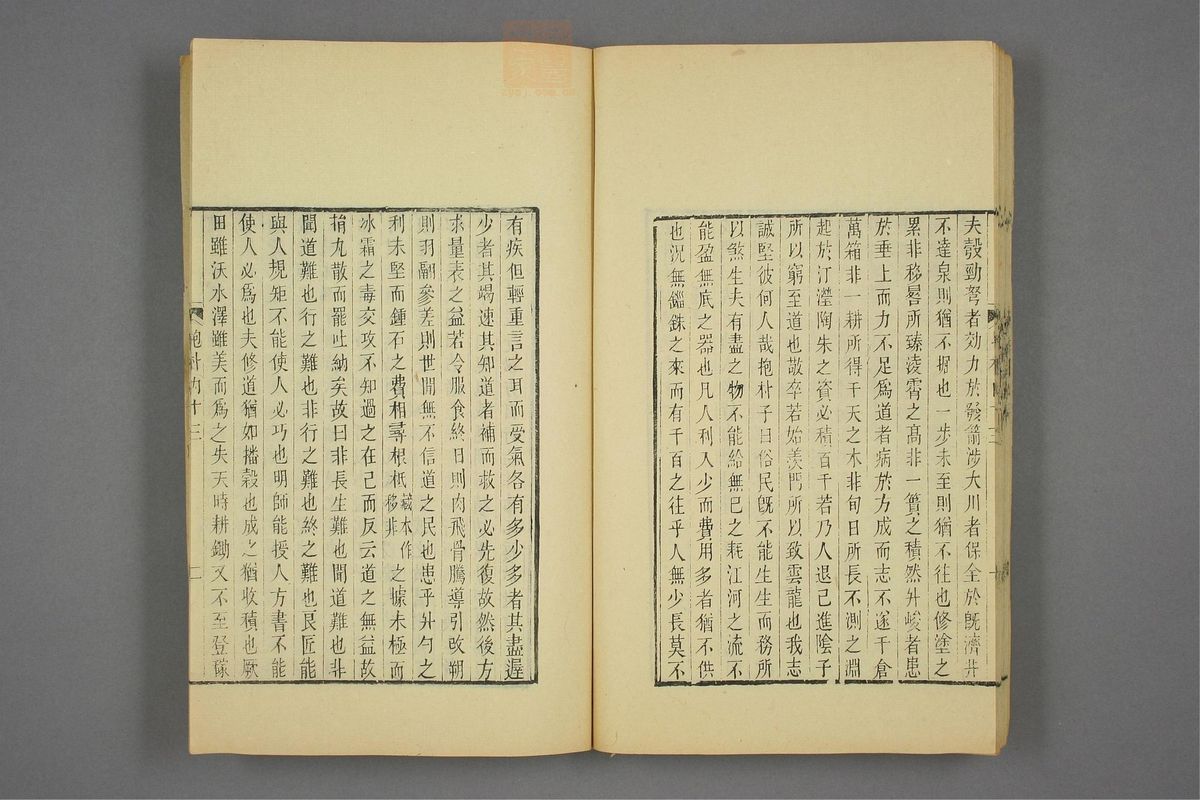 夫彀勁弩者効力於發箭涉大川者保全於旣濟井
不達泉則猶不掘也一步未至則猶不往也修塗之
累非移晷所臻淩霄之高非一簣之積然升峻者患
於垂上而力不足爲道者病於方成而志不遂千倉
萬箱非一耕所得干天之木非旬日所長不測之淵
起於汀瀅陶朱之資必積百千若乃人退己進陰子
所以窮至道也敬卒若始羡門所以致雲龍也我志
誠堅彼何人哉抱朴子曰俗民旣不能生生而務所
以煞生夫有盡之物不能給無已之耗江河之流不
能盈無底之器也凡人利入少而費用多者猶不供
也況無錙銖之來而有千百之往乎人無少長莫不
有疾但輕重言之耳而受氣各有多少多者其盡遲
少者其竭速其知道者補而救之必先復故然後方
求量表之益若令服食終日則肉飛骨騰導引改朔
則羽翮參差則世閒無不信道之民也患乎升勺之
利未堅而鍾石之費相尋根柢藏本作移非之據未極而
冰霜之毒交攻不知過之在己而反云道之無益故
捐丸散而罷吐納矣故曰非長生難也聞道難也非
聞道難也行之難也非行之難也終之難也良匠能
與人規矩不能使人必巧也明師能授人方書不能
使人必爲也夫修道猶如播穀也成之猶收積也厥
田雖沃水澤雖美而爲之失天時耕鋤又不至登稼
抱朴內十三
二